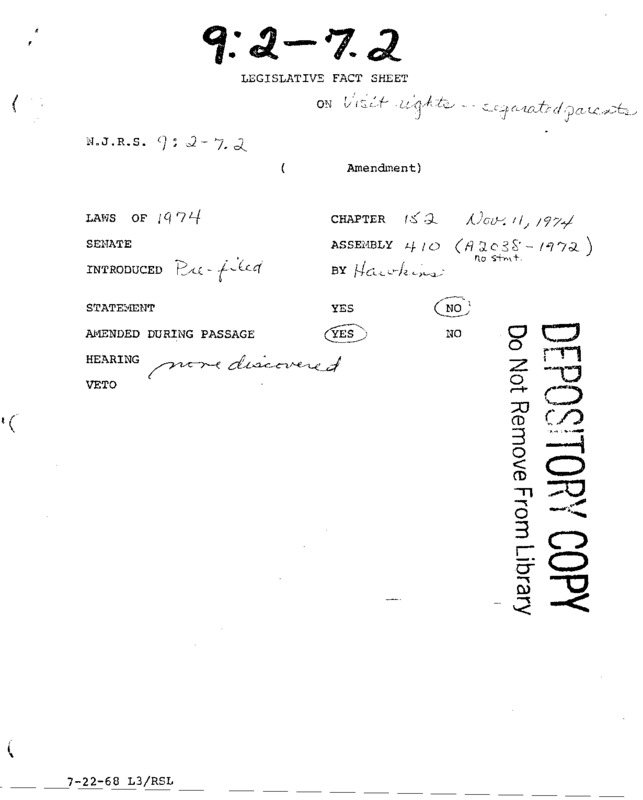 9:2-7.2
LEGISLATIVE FACT SHEET
ON Visit rights -- separated parents
N.J.R.S. 9:2-7.2
( Amendment)
LAWS OF 1974 CHAPTER 152 Nov. 11, 1974
SENATE ASSEMBLY 410 (A2038-1972)
no stmt.
INTRODUCED Pre-filed BY Hawkins
STATEMENT YES NO
AMENDED DURING PASSAGE YES NO
HEARING none discovered
VETO
DEPOSITORY COPY
Do Not Remove From Library
7-22-68 L3/RSL